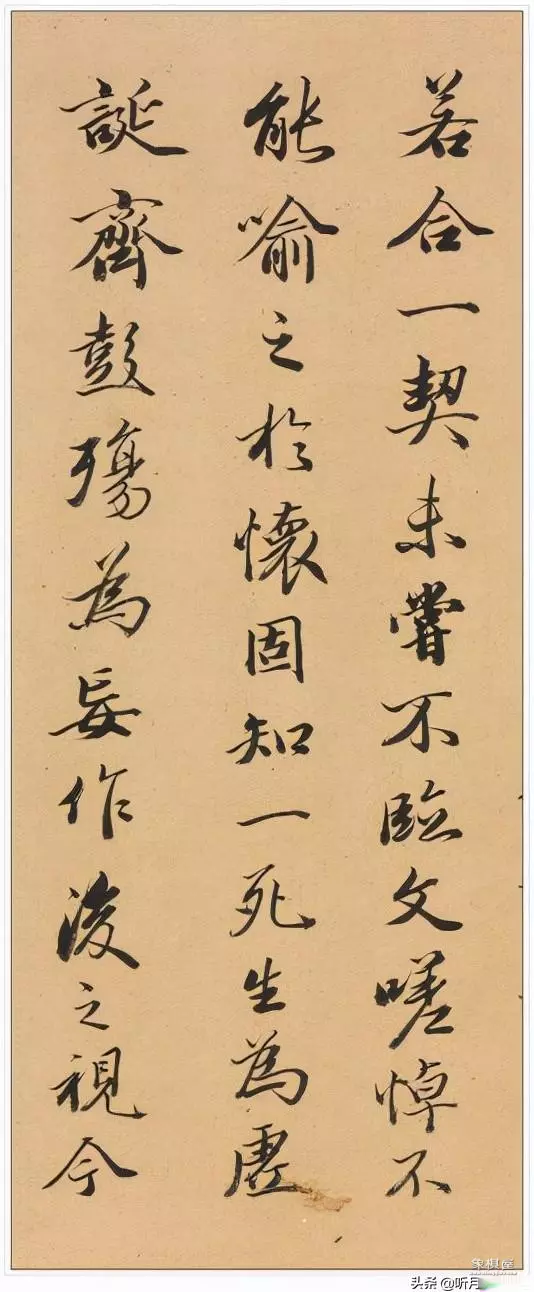 若合一契未嘗不臨文嗟悼不
能喻之於懷固知一死生為虛
誕齊彭殤為妄作後之視今
头条 @听月